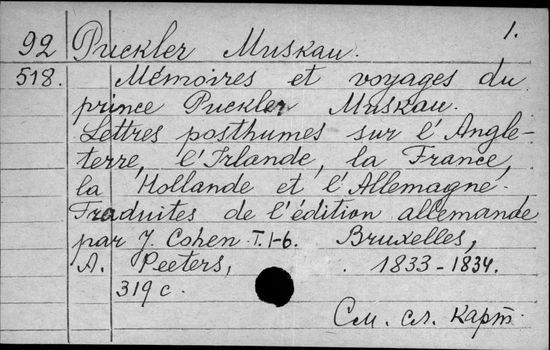 1.
92 Puckler Muskau.
518. Mémoires et voyages du
prince Puckler Muskau.
Lettres posthumes sur l'Angle-
terre, l'Irlande, la France,
la Hollande et l'Allemagne.
Traduites de l'édition allemande
par J. Cohen T. 1-6. Bruxelles,
A. Peeters, 1833-1834.
319 c.
См. сл. карт.